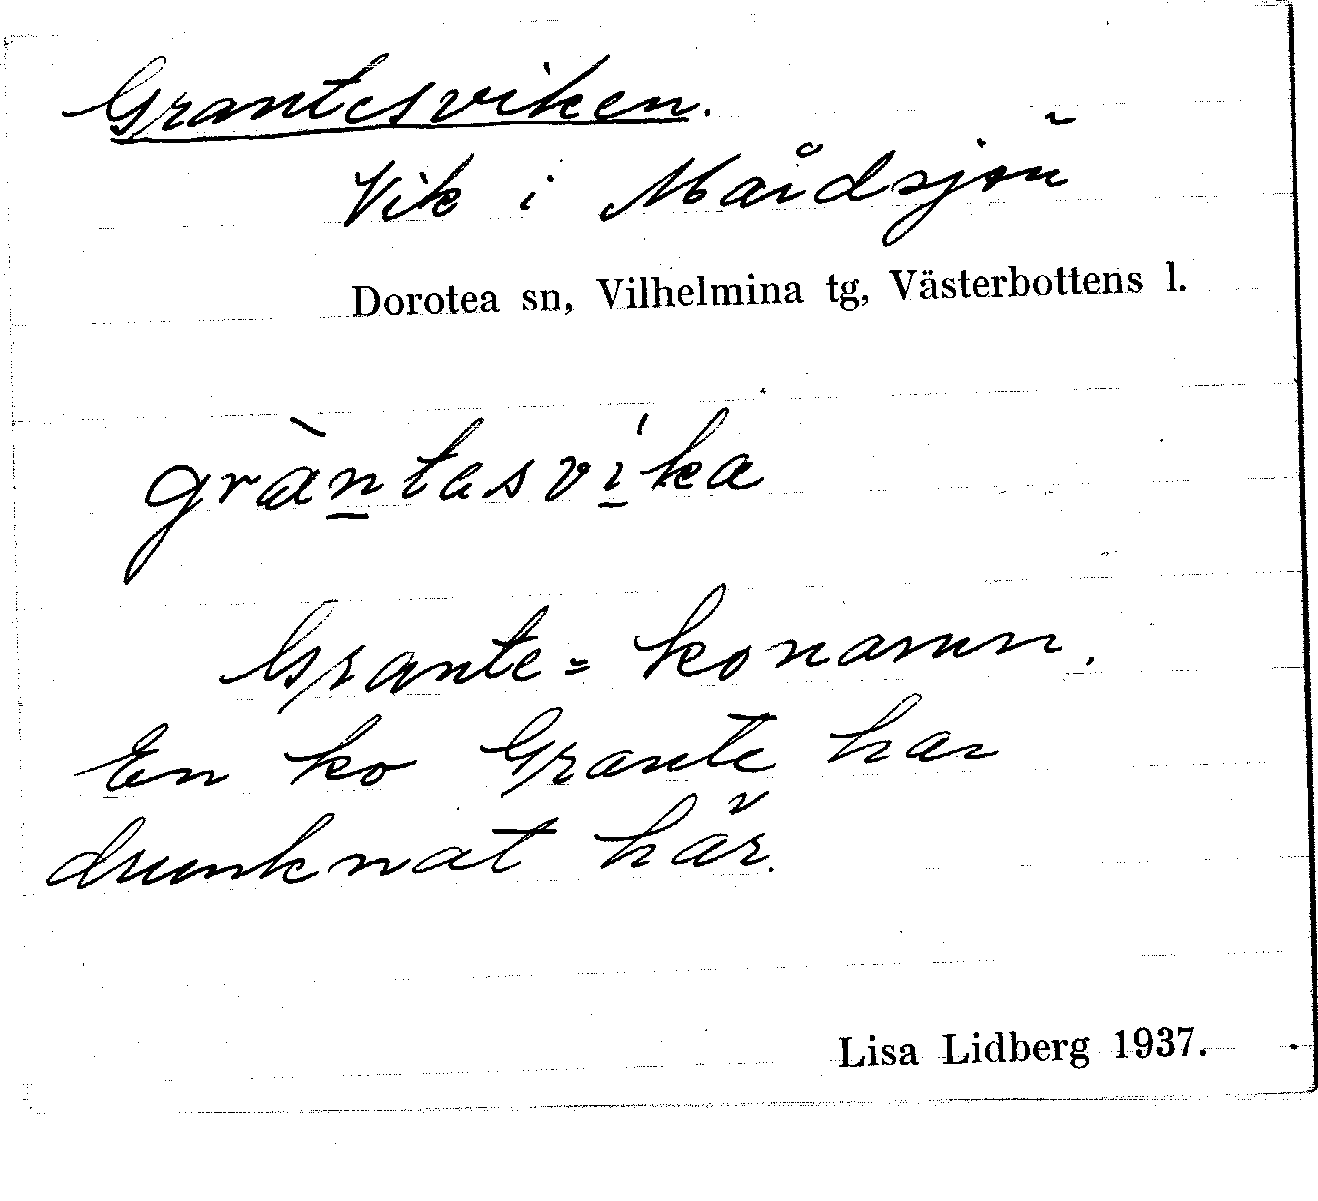 Grantesviken.
Vik i Mårdsjön
Dorotea sn, Vilhelmina tg, Västerbottens l.
gràntasvíka
Grante = konamn.
En ko Grante har
drunknat här.
Lisa Lidberg 1937.